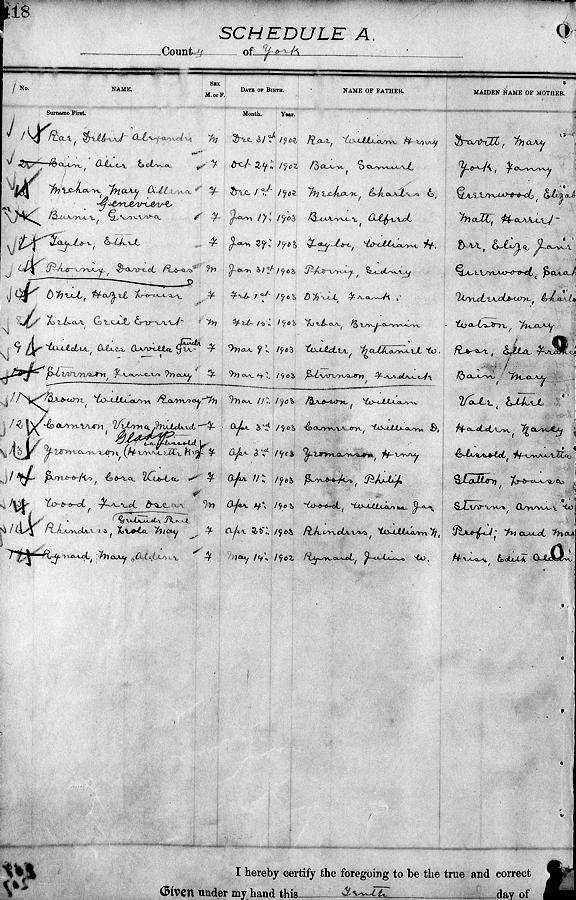 418
SCHEDULE A.
County of York
No. NAME. SEX M. or F. DATE OF BIRTH. NAME OF FATHER. MAIDEN NAME OF MOTHER.
Surname First. Month. Year.
1 Rae, Delbert Alexander M Dec 31st 1902 Rae, William Henry Davitt, Mary
2 Bain, Alice Edna F Oct 24th 1902 Bain, Samuel York, Fanny
3 Mechan, Mary Allena F Dec 1st 1902 Mechan, Charles E. Greenwood, Elizab
Genevieve
Burnie, Geneva F Jan 17th 1903 Burnie, Alfred Matt, Harriet
Taylor, Ethel F Jan 29th 1903 Taylor, William H. Orr, Eliza Jane
Phornix, David Ross M Jan 31st 1903 Phornix, Sidney Greenwood, Sarah
O'Neil, Hazel Louise F Feb 1st 1903 O'Neil, Frank. Underdown, Charlo
8 Lebar, Cecil Everet M Feb 15th 1903 Lebar, Benjamin Watson, Mary
9 Wilder, Alice Arvilla Gertrude F Mar 9th 1903 Wilder, Nathaniel W. Rose, Ella France
10 Stevenson, Frances Mary F Mar 4th 1903 Stevenson, Fredrick Bain, Mary
11 Brown, William Ramsay M Mar 11th 1903 Brown, William Vale, Ethel
12 Cameron, Velma Mildred F Apr 3rd 1903 Cameron, William D. Hadden, Nancy
Gladys
13 Yeomanson, (Henrietta F Apr 3rd 1903 Yeomanson, Henry Clissold, Henrietta
14 Snooks, Cora Viola F Apr 11th 1903 Snooks, Philip Statton, Louisa
Wood, Fred Oscar M Apr 4th 1903 Wood, William Jas Stevens, Annie
Gertrude Pearl
16 Rhindress, Leola May F Apr 25th 1903 Rhindress, William N. Profit, Maud May
17 Rynard, Mary Aldine F May 14th 1902 Rynard, Julius W. Heise, Edith
I hereby certify the foregoing to be the true and correct
Given under my hand this Tenth day of